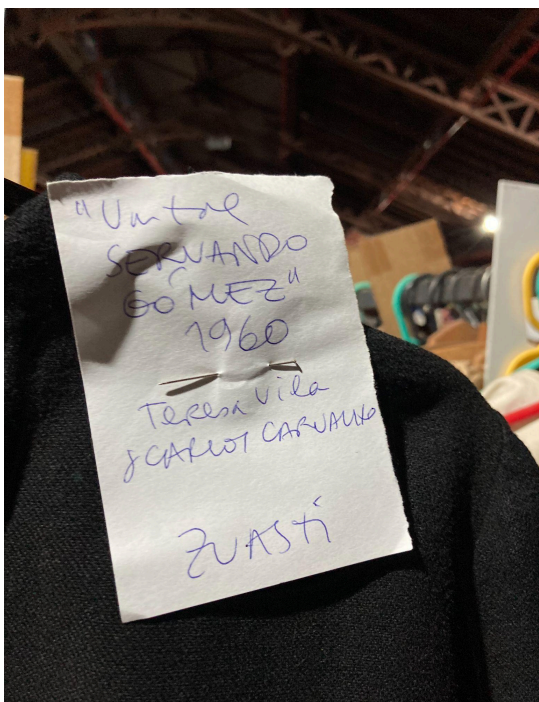 "Un tal
SERVANDO
GÓMEZ"
1960
Teresa Vila
y CARLOS CARVALHO
ZUASTI